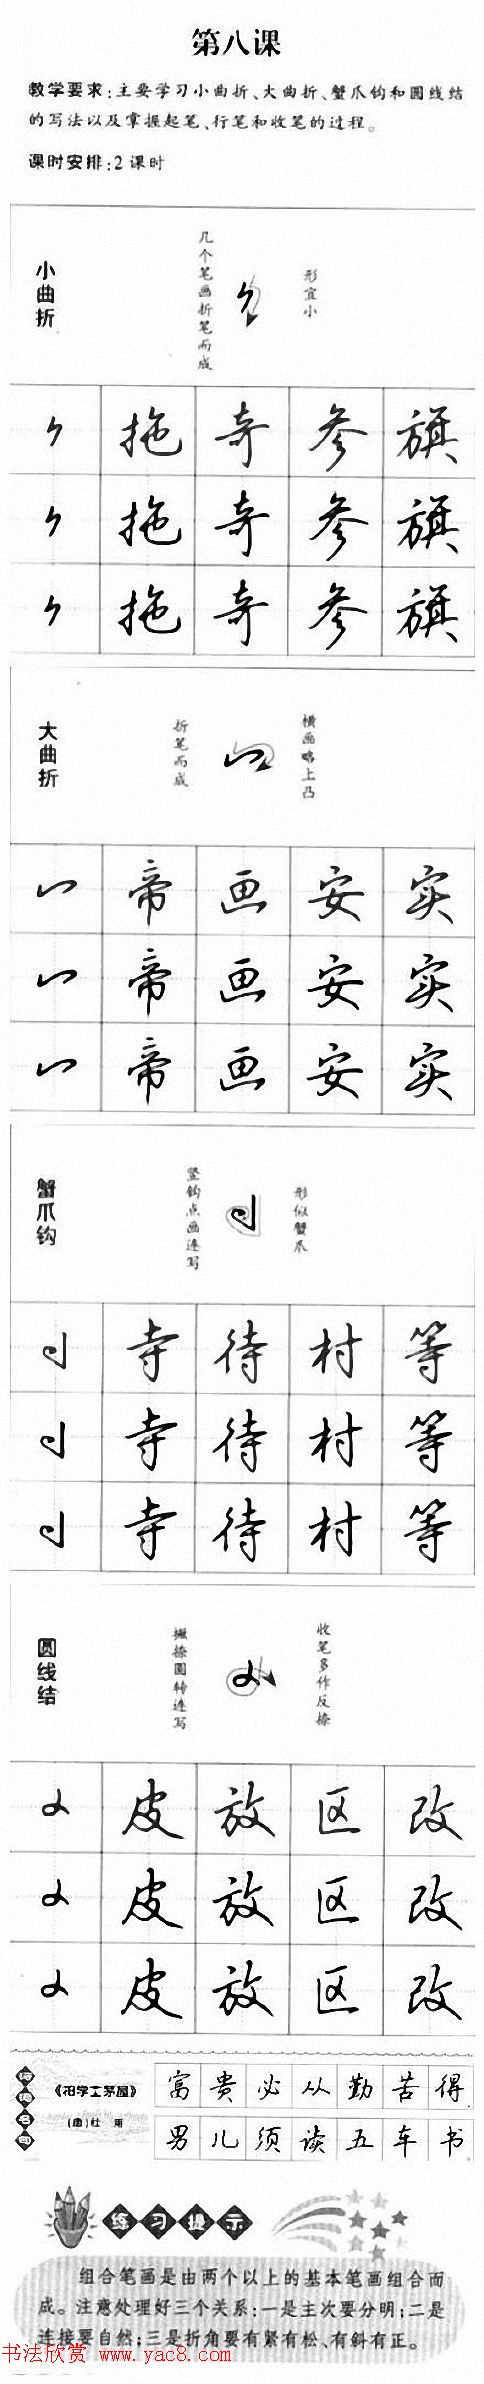 第八课
教学要求:主要学习小曲折、大曲折、蟹爪钩和圆线结
的写法以及掌握起笔、行笔和收笔的过程。
课时安排:2课时
小曲折
几个笔画折笔而成
形宜小
拖 奇 参 旗
拖 奇 参 旗
拖 奇 参 旗
大曲折
折笔而成
横画略上凸
帝 画 安 实
帝 画 安 实
帝 画 安 实
蟹爪钩
竖钩点画连写
形似蟹爪
寺 待 村 等
寺 待 村 等
寺 待 村 等
圆线结
撇捺圆转连写
收笔多作反捺
皮 放 区 改
皮 放 区 改
皮 放 区 改
诗词名句
《柏学士茅屋》
(唐)杜甫
富贵必从勤苦得
男儿须读五车书
练习提示
组合笔画是由两个以上的基本笔画组合而
成。注意处理好三个关系:一是主次要分明;二是
连接要自然;三是折角要有紧有松、有斜有正。
书法欣赏 www.yac8.com